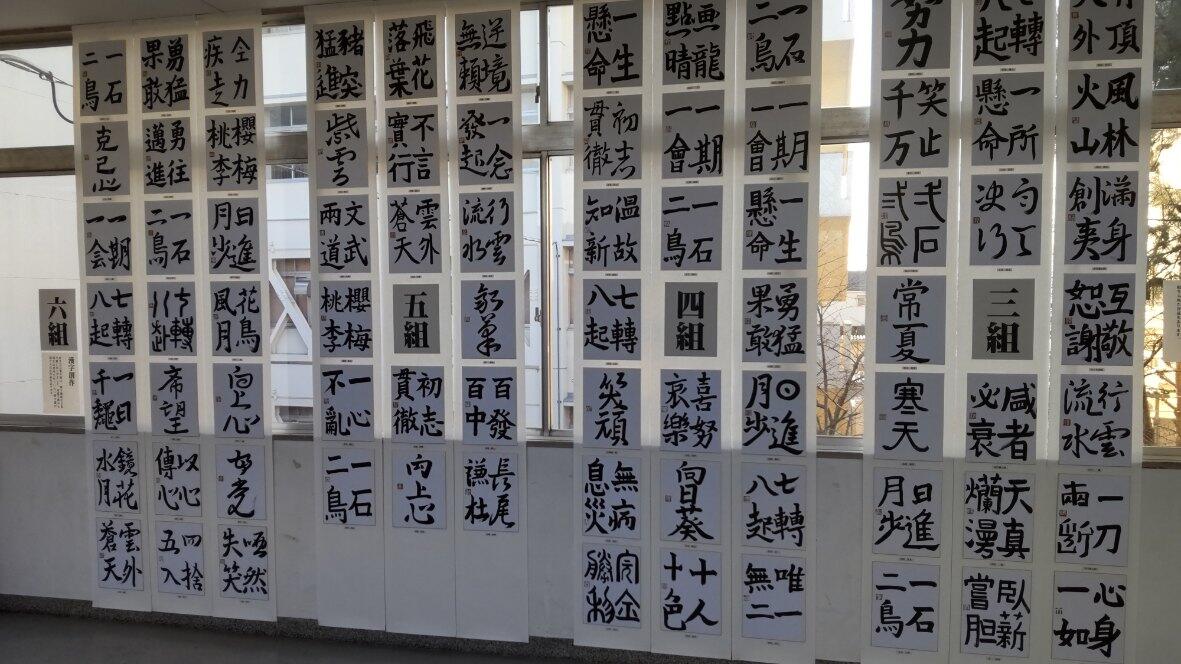 頂
外
風林
火山
満身
創夷
互敬
恕謝
行雲
流水
一刀
両断
心身
一如
七轉
八起
一所
懸命
三組
咸者
必衰
天真
爛漫
臥薪
嘗胆
努力
笑止
千万
常夏
寒天
日進
月歩
一石
二鳥
一石
二鳥
一期
一會
一生
懸命
勇猛
果敢
日進
月歩
七轉
八起
唯一
無二
画龍
點晴
一期
一會
一石
二鳥
四組
喜努
哀樂
向日葵
十人
十色
一生
懸命
初志
貫徹
温故
知新
七轉
八起
笑顔
無病
息災
完全
勝利
逆境
無頼
一念
發起
行雲
流水
百發
百中
長尾
謙杜
飛花
落葉
不言
實行
雲外
蒼天
五組
初志
貫徹
向上心
豬突
猛進
紫雲
文武
兩道
櫻梅
桃李
一心
不亂
一石
二鳥
全力
疾走
櫻梅
桃李
日進
月歩
花鳥
風月
向上心
啞然
失笑
勇猛
果敢
勇往
邁進
一石
二鳥
七轉
八起
希望
以心
傳心
四捨
五入
一石
二鳥
克己心
一期
一会
七轉
八起
一日
鏡花
水月
雲外
蒼天
六組
漢字創作